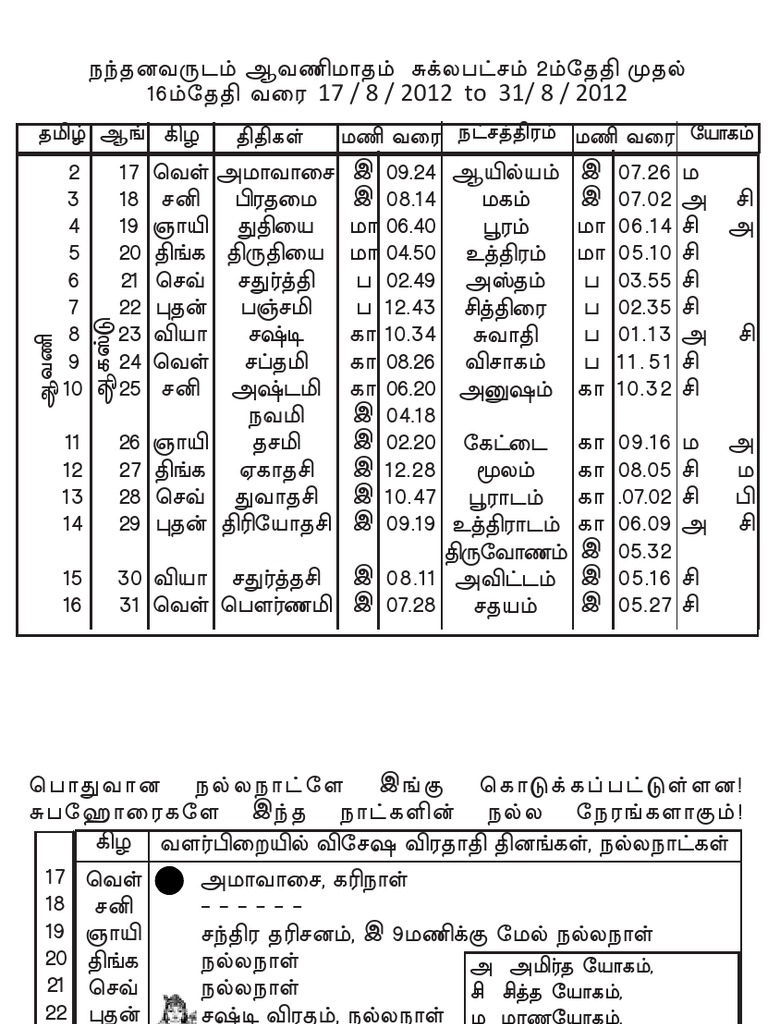 நந்தனவருடம் ஆவணிமாதம் சுக்லபட்சம் 2ம்தேதி முதல்
16ம்தேதி வரை 17 / 8 / 2012 to 31/ 8 / 2012
தமிழ் ஆங் கிழ திதிகள் மணி வரை நட்சத்திரம் மணி வரை யோகம்
2 17 வெள் அமாவாசை இ 09.24 ஆயில்யம் இ 07.26 ம
3 18 சனி பிரதமை இ 08.14 மகம் இ 07.02 அ சி
4 19 ஞாயி துதியை மா 06.40 பூரம் மா 06.14 சி அ
5 20 திங்க திருதியை மா 04.50 உத்திரம் மா 05.10 சி
6 21 செவ் சதுர்த்தி ப 02.49 அஸ்தம் ப 03.55 சி
7 22 புதன் பஞ்சமி ப 12.43 சித்திரை ப 02.35 சி
ஆவணி 8 ஆகஸ்டு 23 வியா சஷ்டி கா 10.34 சுவாதி ப 01.13 அ சி
9 24 வெள் சப்தமி கா 08.26 விசாகம் ப 11.51 சி
10 25 சனி அஷ்டமி கா 06.20 அனுஷம் கா 10.32 சி
நவமி இ 04.18
11 26 ஞாயி தசமி இ 02.20 கேட்டை கா 09.16 ம அ
12 27 திங்க ஏகாதசி இ 12.28 மூலம் கா 08.05 சி ம
13 28 செவ் துவாதசி இ 10.47 பூராடம் கா .07.02 சி பி
14 29 புதன் திரியோதசி இ 09.19 உத்திராடம் கா 06.09 அ சி
திருவோணம் இ 05.32
15 30 வியா சதுர்த்தசி இ 08.11 அவிட்டம் இ 05.16 சி
16 31 வெள் பௌர்ணமி இ 07.28 சதயம் இ 05.27 சி
பொதுவான நல்லநாட்ளே இங்கு கொடுக்கப்பட்டுள்ளன!
சுபஹோரைகளே இந்த நாட்களின் நல்ல நேரங்களாகும்!
கிழ வளர்பிறையில் விசேஷ விரதாதி தினங்கள், நல்லநாட்கள்
17 வெள் அமாவாசை, கரிநாள்
18 சனி – – – – – –
19 ஞாயி சந்திர தரிசனம், இ 9மணிக்கு மேல் நல்லநாள்
20 திங்க நல்லநாள்
அ அமிர்த யோகம்,
21 செவ் நல்லநாள்
சி சித்த யோகம்,
22 புதன் சஷ்டி விரதம், நல்லநாள்
ம மரணயோகம்,